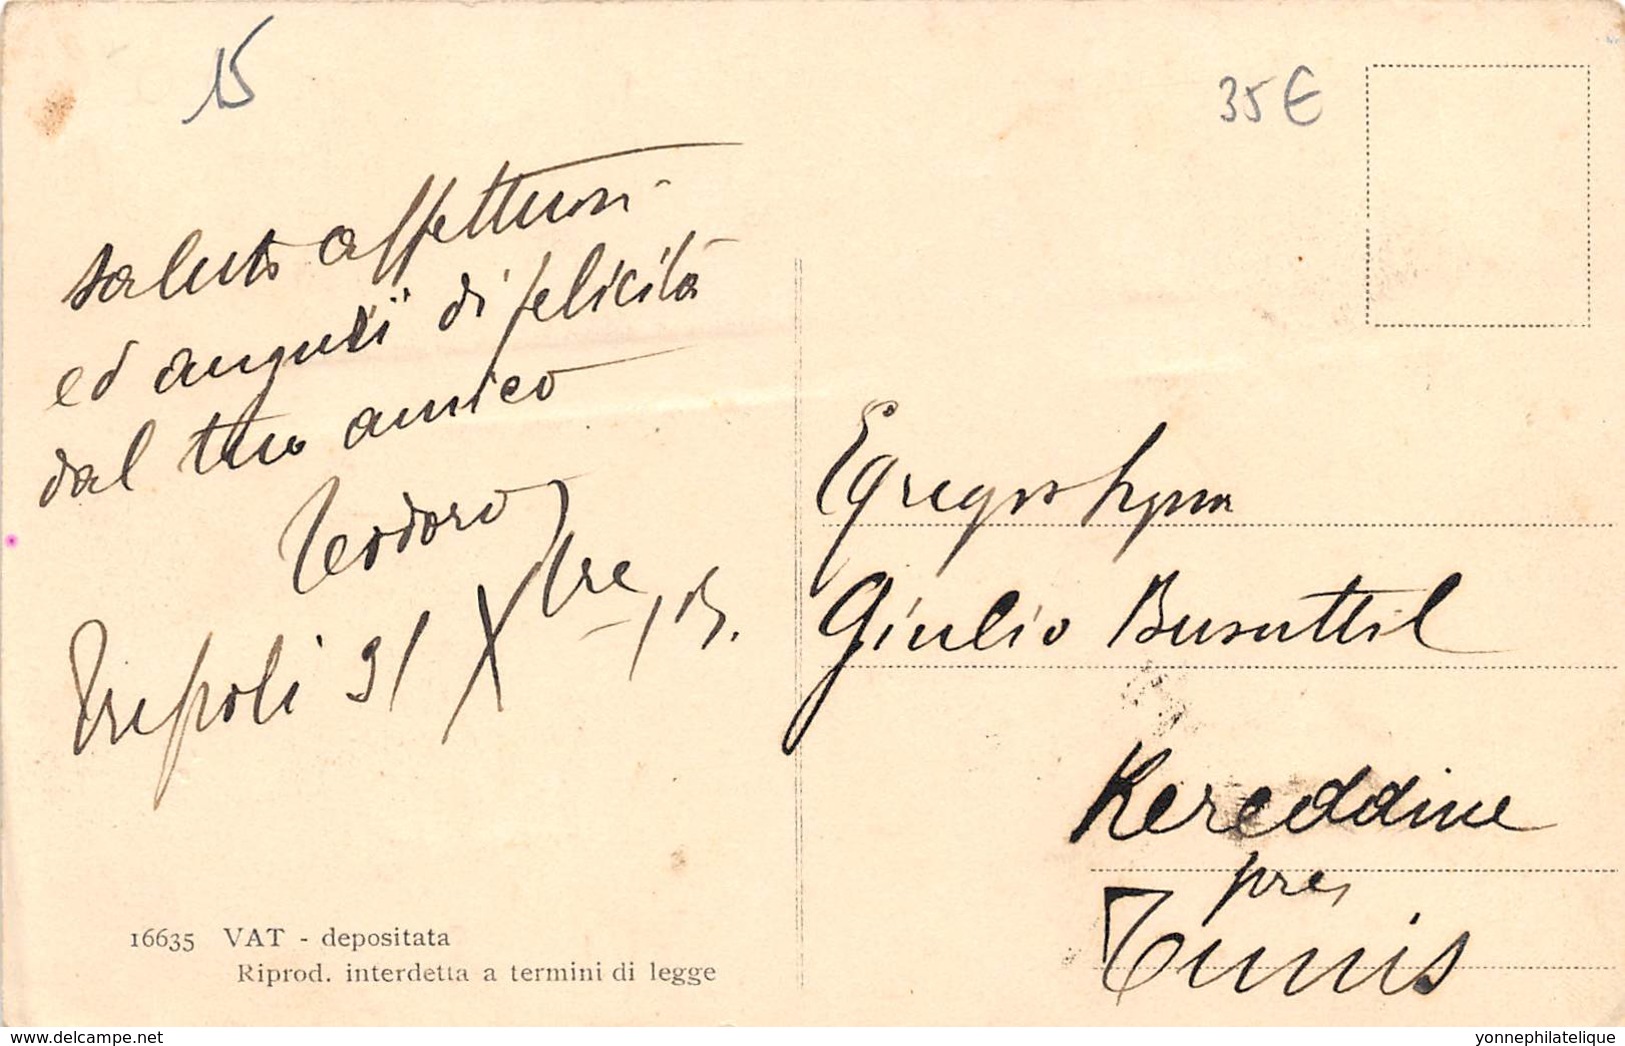 15
35 €
saluto affettuosi
ed auguri di felicità
dal tuo amico
Teodoro
Tripoli 31 Xbre 13.
Egregio Signor
Giulio Busuttil
Kereddine
pres
Tunis
16635 VAT - depositata
Riprod. interdetta a termini di legge
delcampe.net
yonnephilatelique